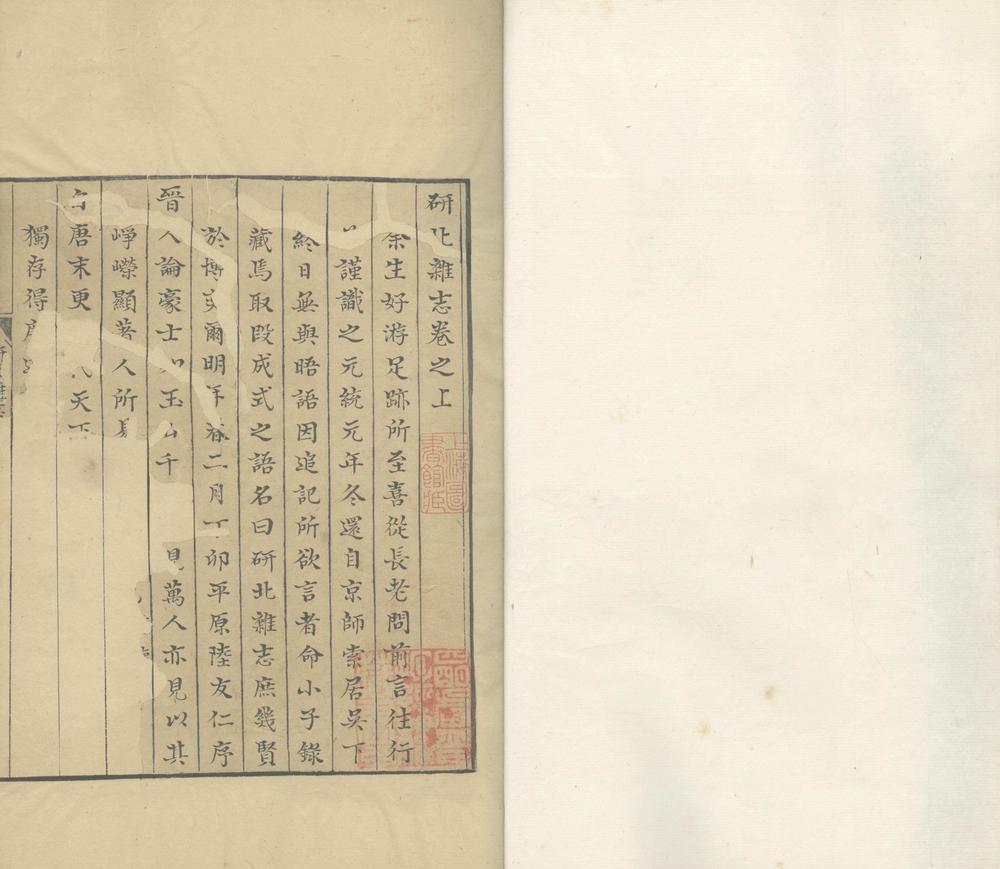 研北雜志卷之上
余生好游足跡所至喜從長老問前言往行
謹識之元統元年冬還自京師索居吳下
終日無與晤語因追記所欲言者命小子錄
藏焉取段成式之語名曰研北雜志庶幾賢
於博奕爾明年春二月丁卯平原陸友仁序
晉人論豪士如玉山千 見萬人亦見以其
崢嶸顯著人所
唐末更 八天下
獨存得
上海圖書館藏